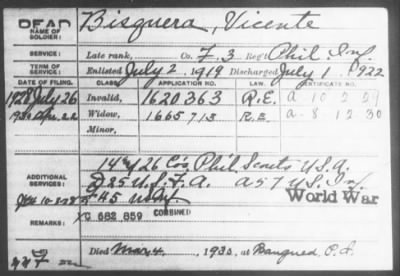 DEAD Bisquera, Vicente
NAME OF SOLDIER:
SERVICE: Late rank, Co. F, 3 Reg't Phil. Inf.
TERM OF SERVICE: Enlisted July 2, 1919 Discharged July 1, 1922
DATE OF FILING. CLASS. APPLICATION NO. LAW. CERTIFICATE NO.
1928 July 26 Invalid, 1620363 R.E. a 10 2 29
1930 Apr. 22 Widow, 1665713 R.E. a-8 12 30
Minor,
ADDITIONAL SERVICES: 14 & 26 Co's. Phil. Scouts U.S.A.
25 U.S.F.A. a 57 U.S. Inf.
45 World War
REMARKS: XC 682 859 COMBINED
Died May 4, 1930, at Bangued, P.I.